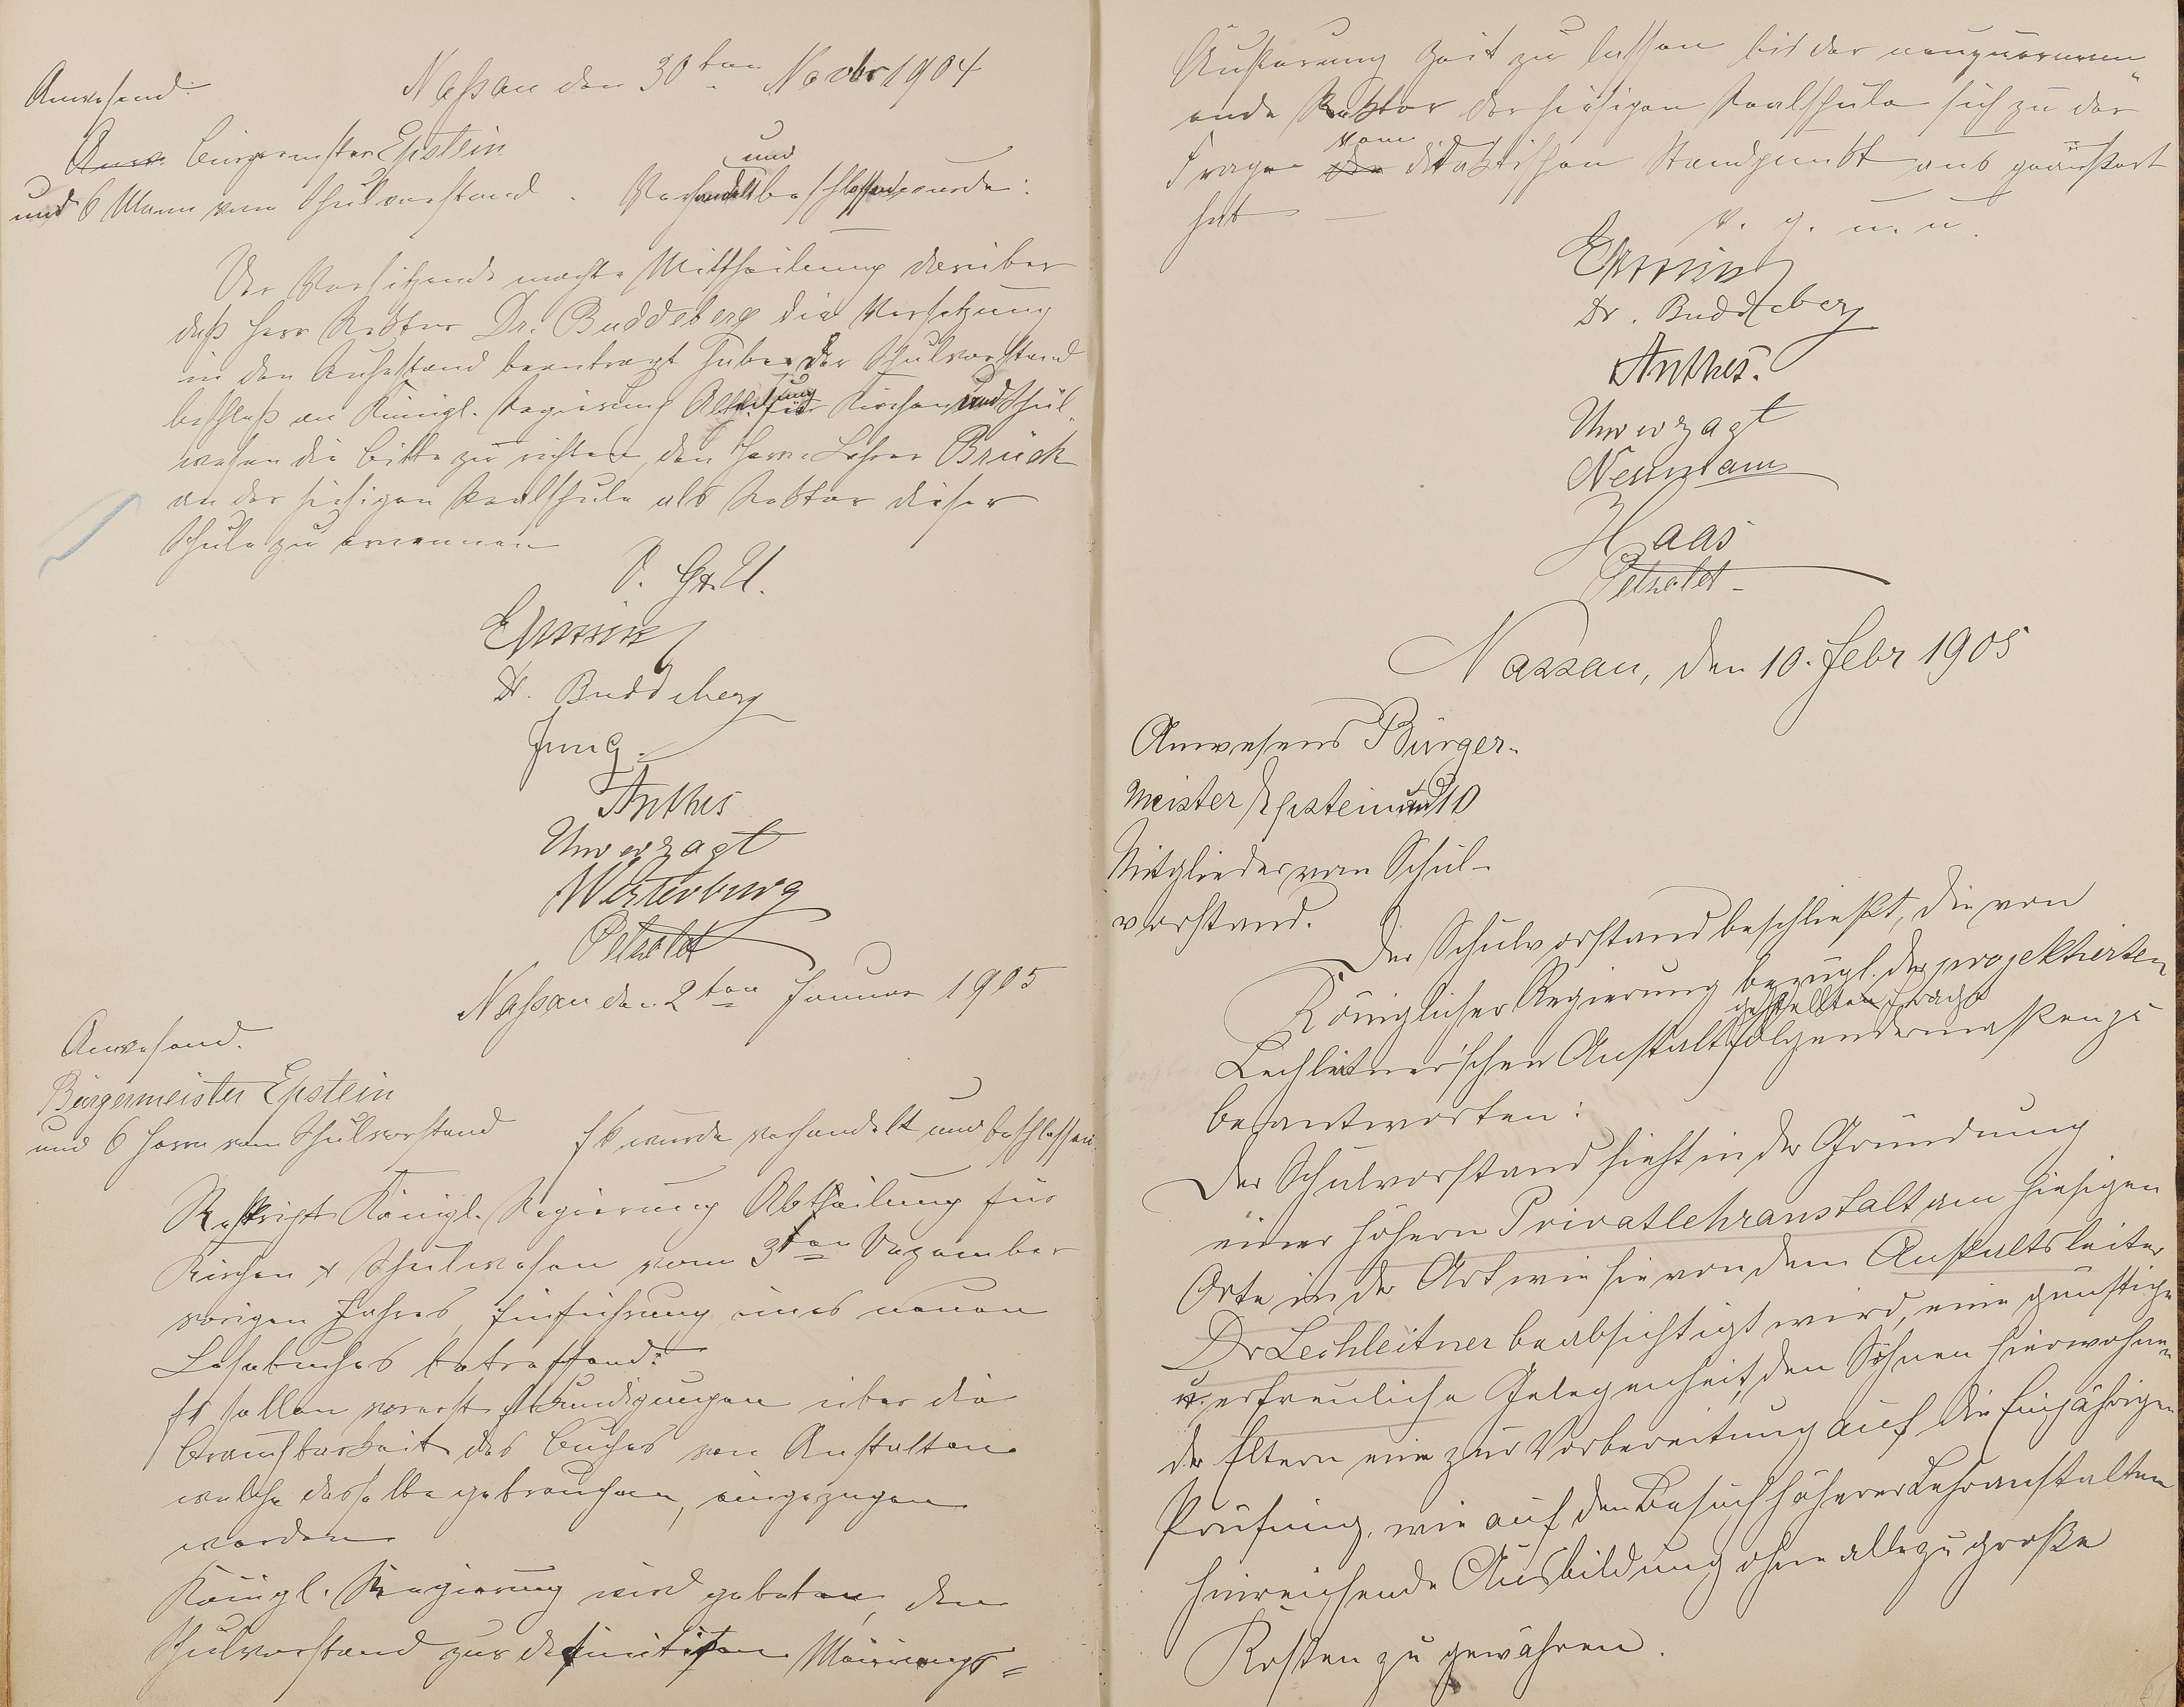 Anwesend:
Naßau den 30ten Novbr 1904
Anw. Bürgermstr Epstein
und 6 Mann vom Schulvorstand.
Verhandelt und beschlossen wurde:
Der Vorsitzende machte Mittheilung darüber
daß Herr Rektor Dr. Buddeberg die Versetzung
in den Ruhestand beantragt habe. Der Schulvorstand
beschloß an Königl. Regierung Abtheilung für Kirchen und Schul-
wesen die Bitte zu richten, den Herrn Lehrer Brück
an der hiesigen Realschule als Rektor dieser
Schule zu ernennen
V. G. U.
Epstein
Dr. Buddeberg
Jung.
Anthes
Unverzagt
Westerburg
Petzoldt
Naßau den 2ten Januar 1905
Anwesend.
Bürgermeister Epstein
und 6 Herrn vom Schulvorstand
Es wurde verhandelt und beschlossen:
Reskript Königl. Regierung Abtheilung für
Kirchen & Schulwesen vom 3ten Dezember
vorigen Jahres, Einführung eines neuen
Lesebuches betreffend:
Es sollen vorerst Erkundigungen über die
Brauchbarkeit des Buches von Anstalten
welche dasselbe gebrauchen, eingezogen
werden
Königl. Regierung wird gebeten, dem
Schulvorstand zur definitiven Meinungs-
Äußerung Zeit zu lassen bis der neuzuernen-
ende Rektor der hiesigen Realschule sich zu der
Frage vom didaktischen Standpunkt aus geäußert
hat —
v. g. u. u.
Epstein
Dr. Buddeberg
Anthes.
Unverzagt
Neumann
Haas
Petzoldt
Nassau, den 10. Febr 1905
Anwesend Bürger-
meister Epstein und 10
Mitglieder vom Schul-
vorstand.
Der Schulvorstand beschließt, die von
Königlicher Regierung bezügl. der projektierten
Lechleitner'schen Anstalt gestellten Frage folgendermaßen zu
beantworten:
Der Schulvorstand sieht in der Gründung
einer höhern Privatlehranstalt am hiesigen
Orte in der Art wie sie von dem Anstaltsleiter
Dr Lechleitner beabsichtigt wird, eine günstige
u. erfreuliche Gelegenheit, den Söhnen hierwohnen-
der Eltern eine zur Vorbereitung auf die Einjährigen
Prüfung, wie auf den Besuch höherer Lehranstalten
hinreichende Ausbildung ohne allzu große
Kosten zu gewähren.